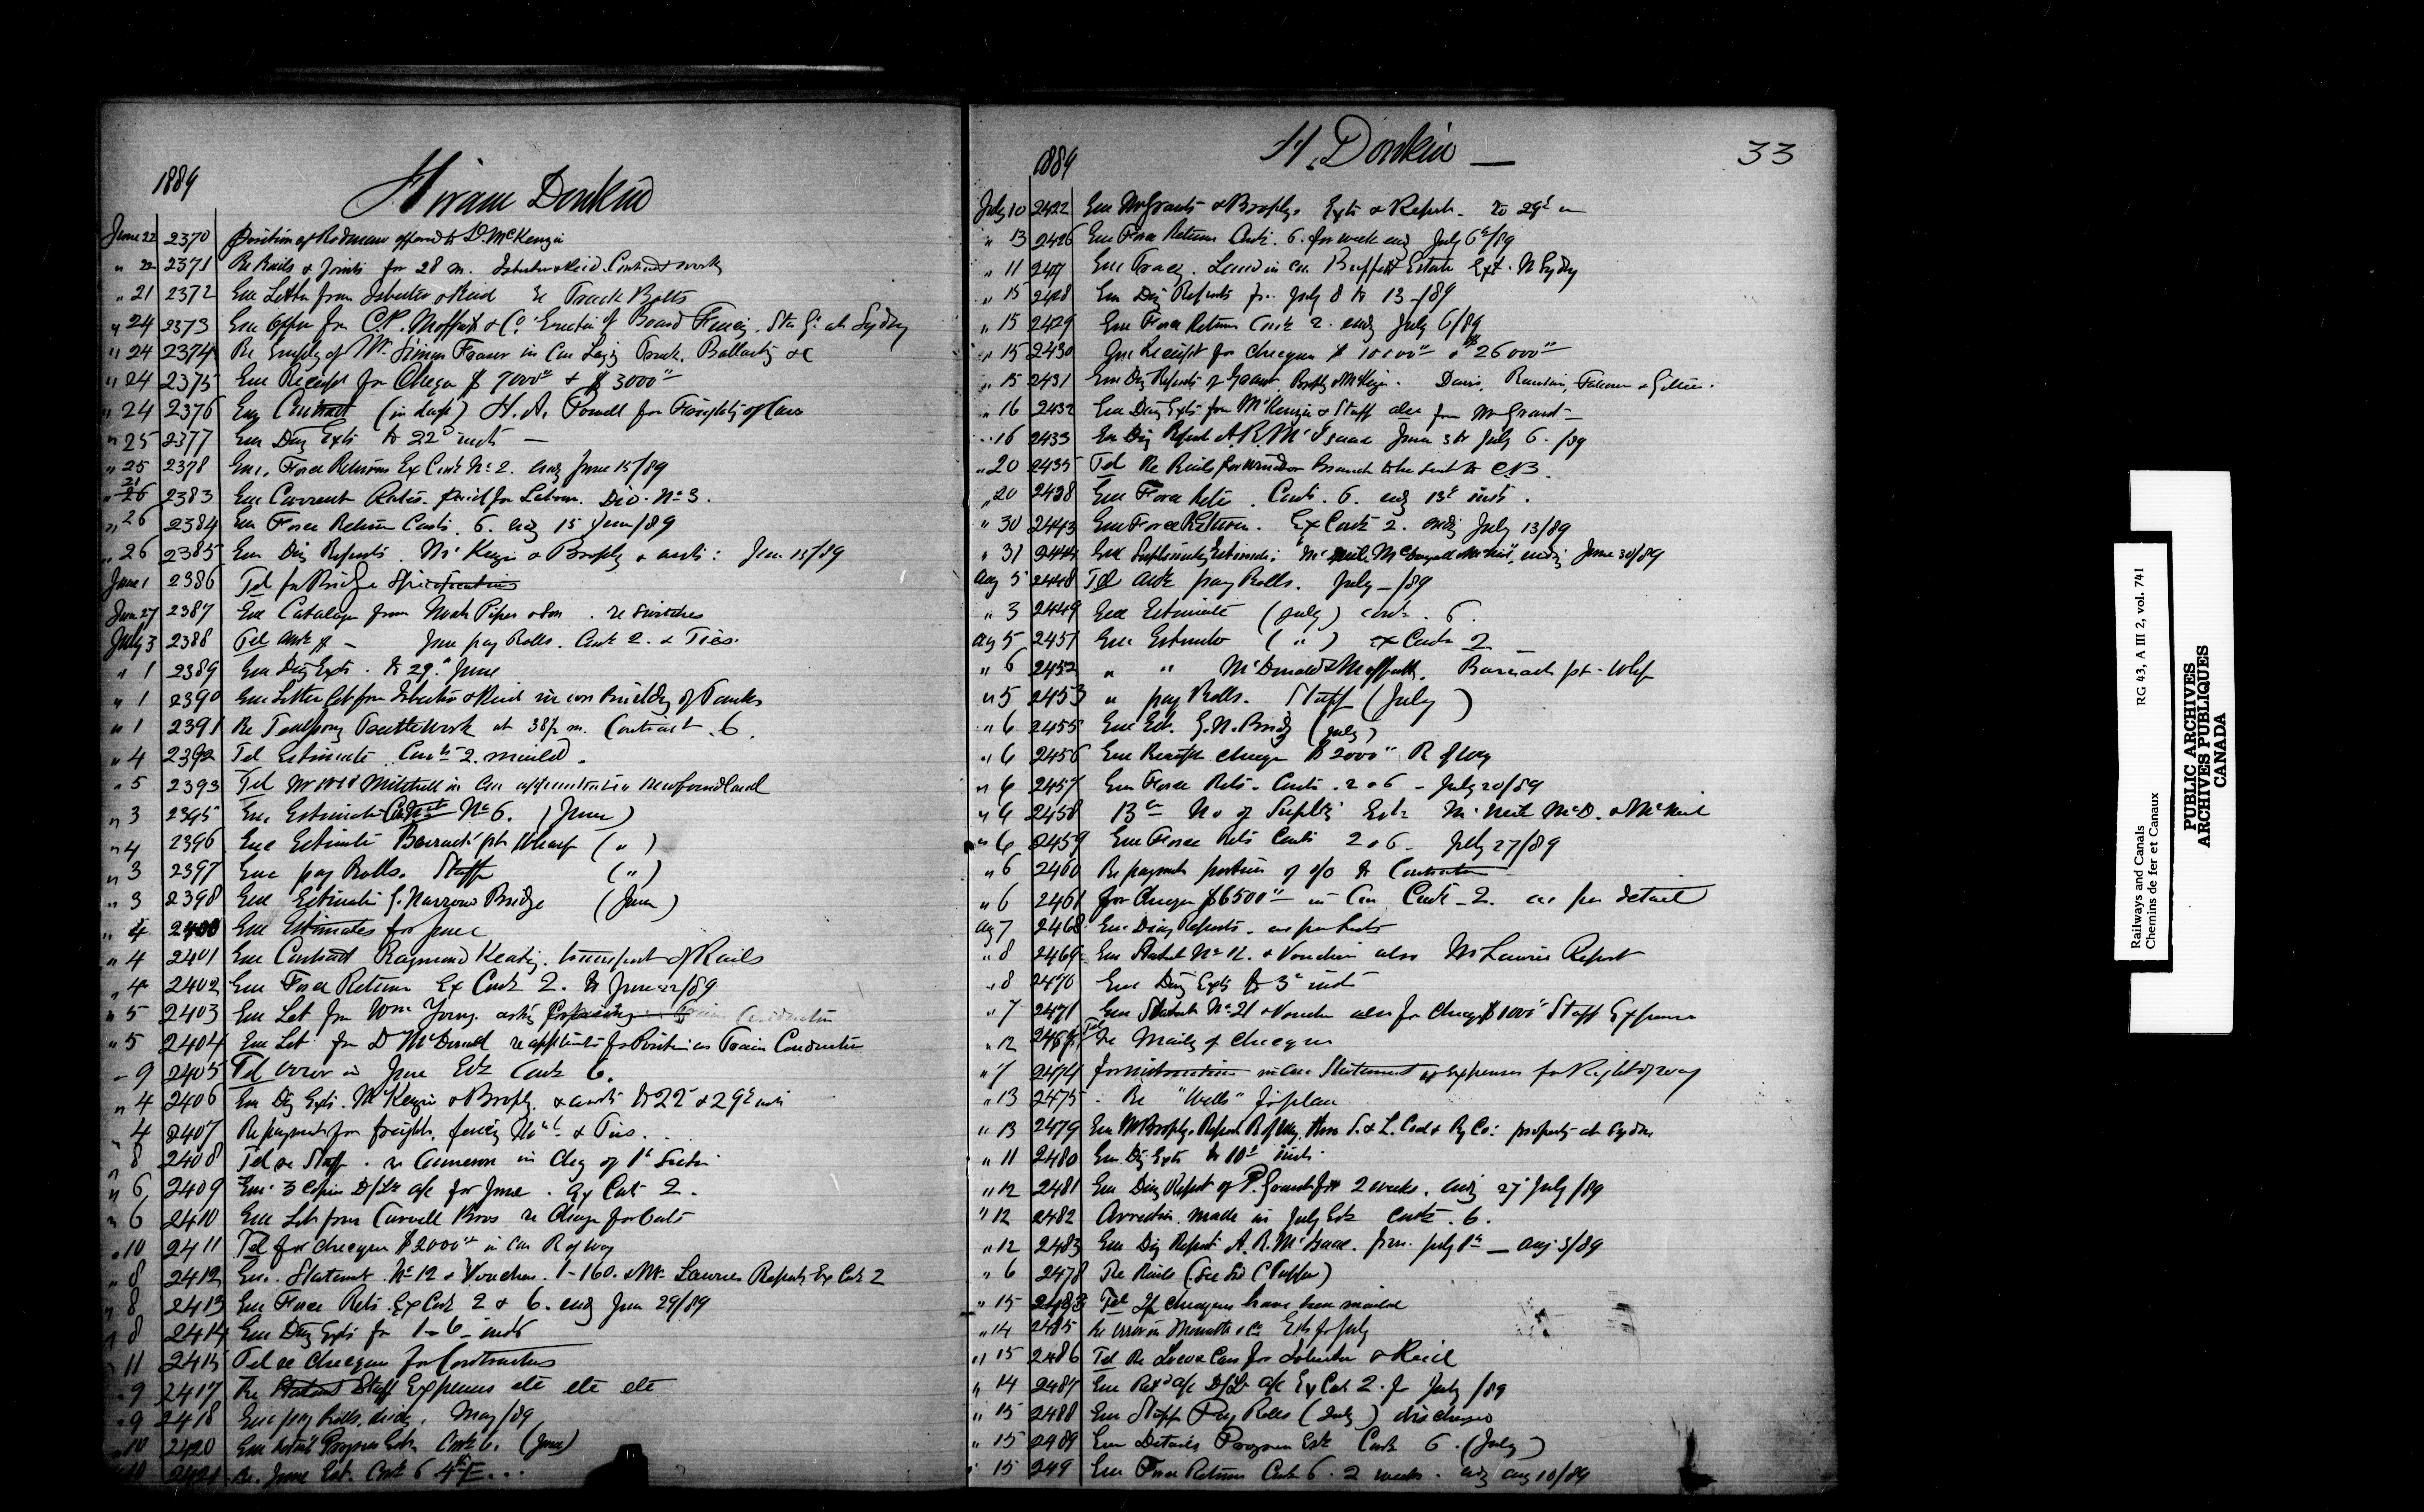 1889
Hiram Donkin
June 22 2370 Position of Rodman offered to D. McKenzie
" 22 2371 Re Rails & Joints for 28 m. Isbester & Reid Contract work
" 21 2372 Enc Letter from Isbester & Reid re Track Bolts
" 24 2373 Enc Offer from C.P. Moffatt & Co. Erection of Board Fencing. Sta Gr. at Sydney
" 24 2374 Re Employ of Mr. Simon Fraser in Con Laying Track, Ballasting &c
" 24 2375 Enc Receipt for Cheque $ 7000 & $ 3000
" 24 2376 Contract (in dup) H. A. Powell for of Cars
" 25 2377 Enc Diary Exts to 22 inst
" 25 2378 Enc. Force Returns Ex Cont No 2. endg June 15/89
" 26 2383 Enc Current Rates paid for Labour. Div. No 3.
" 26 2384 Enc Force Return Contr. 6. endg 15 June/89
" 26 2385 Enc Diary Reports McKenzie & Brophy June 15/89
June 1 2386 Tel for Bridge Specifications
Jun 27 2387 Enc Catalogue from Noah Piper & Son. re switches
July 3 2388 Tel June pay Rolls. Contr 2. & Ties.
" 1 2389 Enc Diary Exts. to 29 June
" 1 2390 Enc Letter from Isbester & Reid in con Building of Tanks
" 1 2391 Re Temporary Trestlework at 38½ m. Contract 6.
" 4 2392 Tel Estimate Contr 2. mailed.
" 5 2393 Tel Mitchell in Newfoundland
" 3 2395 Enc Estimate Contract No 6. (June)
" 4 2396 Enc Estimate Barrack pt Wharf (")
" 3 2397 Enc pay Rolls. Staff (")
" 3 2398 Enc Estimate G. Narrows Bridge (June)
" 4 2400 Enc Estimates for June
" 4 2401 Enc Contract Raymond Keating. transport of Rails
" 4 2402 Enc Force Return Ex Contr 2. to June 22/89
" 5 2403 Enc Let from Wm Young. asking for position as Train Conductor
" 5 2404 Enc Let from D McDonald re for Position as Train Conductor
" 9 2405 Tel error in June Est Contr 6.
" 4 2406 Enc Diary Exts. McKenzie & Brophy to 22 & 29 inst
" 4 2407 Re payment for freight, fencing & Ties.
" 8 2408 Tel re Staff. re Cameron in chg of 1st Section
" 6 2409 Enc 3 Copies a/c for June. Ex Contr 2.
" 6 2410 Enc Let from Carvell Bros re Charge for Oats
" 10 2411 Tel for cheque $2000 in con R of way
" 8 2412 Enc. Statement No 12 & Vouchers 1-160. & Mr Lawries Report Ex Contr 2
" 8 2413 Enc Force Rets Ex Contr 2 & 6. endg June 29/89
" 8 2414 Enc Diary Exts for 1-6 inst
" 11 2415 Tel re cheques for Contractors
" 9 2417 Re Staff Expenses etc etc etc
" 9 2418 Enc pay Rolls, May/89
" 10 2420 Enc detail Progress Est. Contr 6. (June)
2421 Re. June Est. Contr 6
1889
H. Donkin
33
July 10 2422 Enc Mr Grants & Brophy's Exts & Report to 29
" 13 2426 Enc Force Return Contr. 6. for week endg July 6/89
" 11 2427 Enc Tracing. Land in con Estate Ext. N Sydney
" 15 2428 Enc Diary Reports from July 8 to 13/89
" 15 2429 Enc Force Return Contr 2. endg July 6/89
" 15 2430 Enc Receipt for cheques $ 10000 & $ 26000
" 15 2431 Enc Diary Reports of Grant, Brophy & McKenzie. Davis,
" 16 2432 Enc Diary Exts from McKenzie & Staff also from Mr Grant
" 16 2433 Enc Diary Report A.R. McIsaac June 3 to July 6. /89
" 20 2435 Tel Re Rails for Windsor Branch to be sent to C.B.
" 20 2438 Enc Force Rets. Contr. 6. endg 13 inst.
" 30 2443 Enc Force Return. Ex Contr 2. endg July 13/89
" 31 2444 Enc Supplementary Estimate: endg June 30/89
Aug 5 2448 Tel pay Rolls. July/89
" 3 2449 Enc Estimate (July) Contr. 6.
Aug 5 2451 Enc Estimate (") Ex Contr 2
" 6 2452 " " McDonald & Moffatt, Barrack pt. Whf
" 5 2453 " pay Rolls. Staff (July)
" 6 2455 Enc Est. G. N. Bridge (July)
" 6 2456 Enc Receipt cheque $2000 R of Way
" 6 2457 Enc Force Rets. Contr. 2 & 6 - July 20/89
" 6 2458 13 No of Est McNeil McD. & McNeil
" 6 2459 Enc Force Rets Contr 2 & 6 - July 27/89
" 6 2460 Re payment portion of a/c to Contractor
" 6 2461 for Cheque $6500 in Con Contr 2. as per detail
Aug 7 2468 Enc Diary Reports. as per
" 8 2469 Enc Statmt No 12. & Vouchers also Mr Lawries Report
" 8 2470 Enc Diary Exts to 3 inst
" 7 2471 Enc Statmt No 21 & Voucher also for Cheque $1000 Staff Expenses
" 12 Tel Re Mailing of Cheques
" 7 2474 for instructions in con Statement of expenses for Right of way
" 13 2475 Re "Wells" for plan
" 13 2479 Enc Mr Brophys Report R of Way, thro S. & L. Coal & Ry Co: property at Sydney
" 11 2480 Enc Diary Exts to 10 inst.
" 12 2481 Enc Diary Report of P. Grant for 2 weeks. endg 27 July/89
" 12 2482 Correction made in July Est Contr. 6.
" 12 2483 Enc Diary Report A. R. McIsaac. from July 1st - Aug 3/89
" 6 2478 Re Rails (See Sir C Tupper)
" 15 2483 Tel If cheques have been mailed
" 14 2485 Re error in Est for July
" 15 2486 Tel Re Loco & Cars for Isbester & Reid
" 14 2487 Enc a/c Ex Contr 2. for July /89
" 15 2488 Enc Staff Pay Rolls (July) discharged
" 15 2489 Enc Details Progress Est Contr 6. (July)
" 15 249 Enc Force Return Contr 6. 2 weeks. endg Aug 10/89
Railways and Canals
Chemins de fer et Canaux
RG 43, A III 2, vol. 741
PUBLIC ARCHIVES
ARCHIVES PUBLIQUES
CANADA